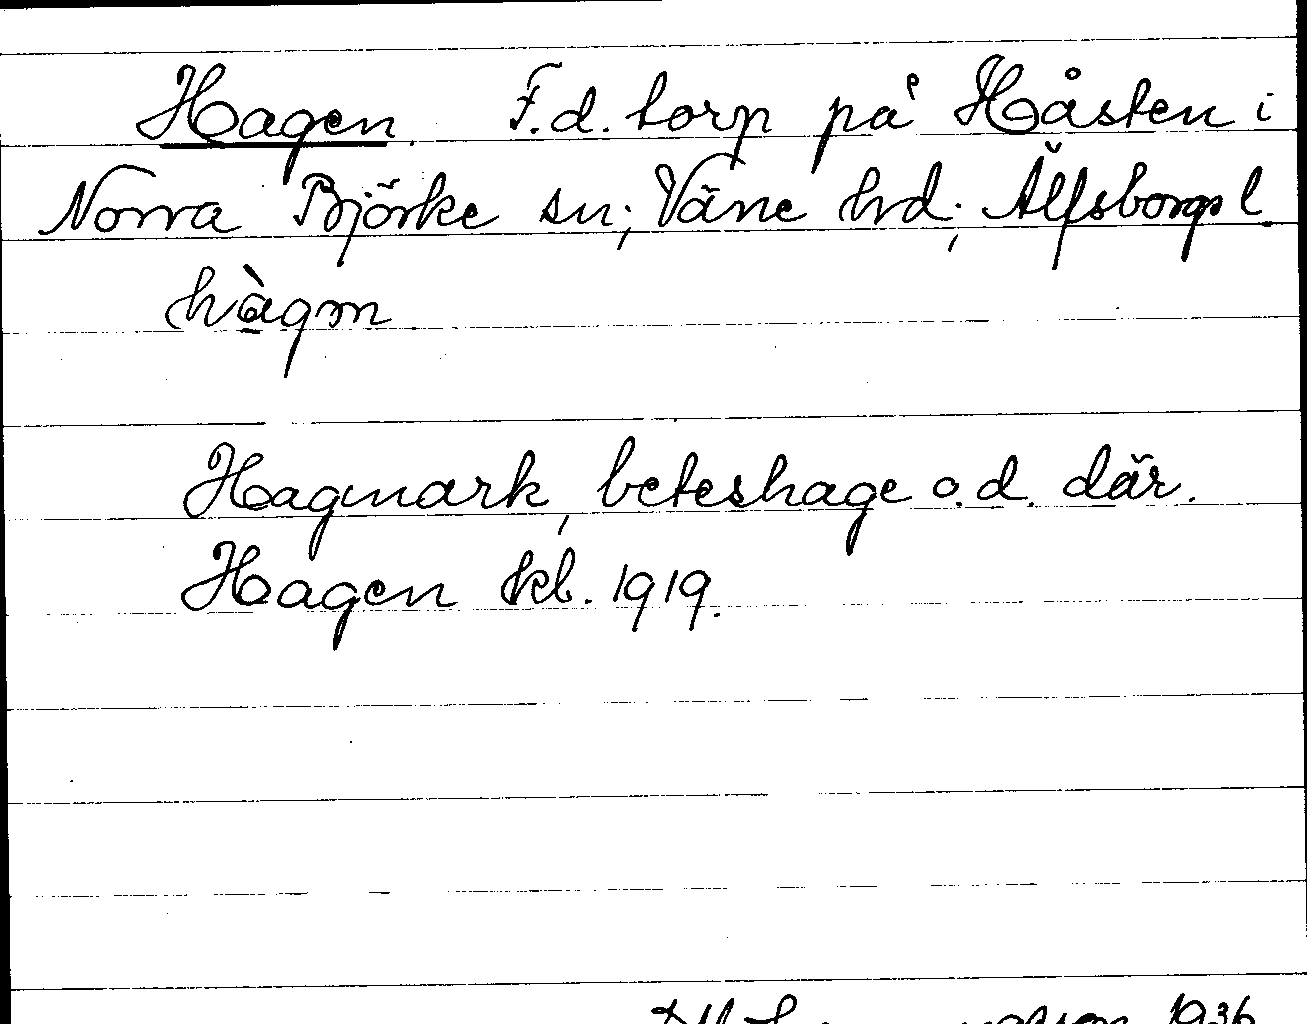 Hagen. F.d. torp på Håsten i
Norra Björke sn; Väne hrd; Älfsborgs l.
hàgm
Hagmark, beteshage o.d. där.
Hagen kb. 1919.
1936